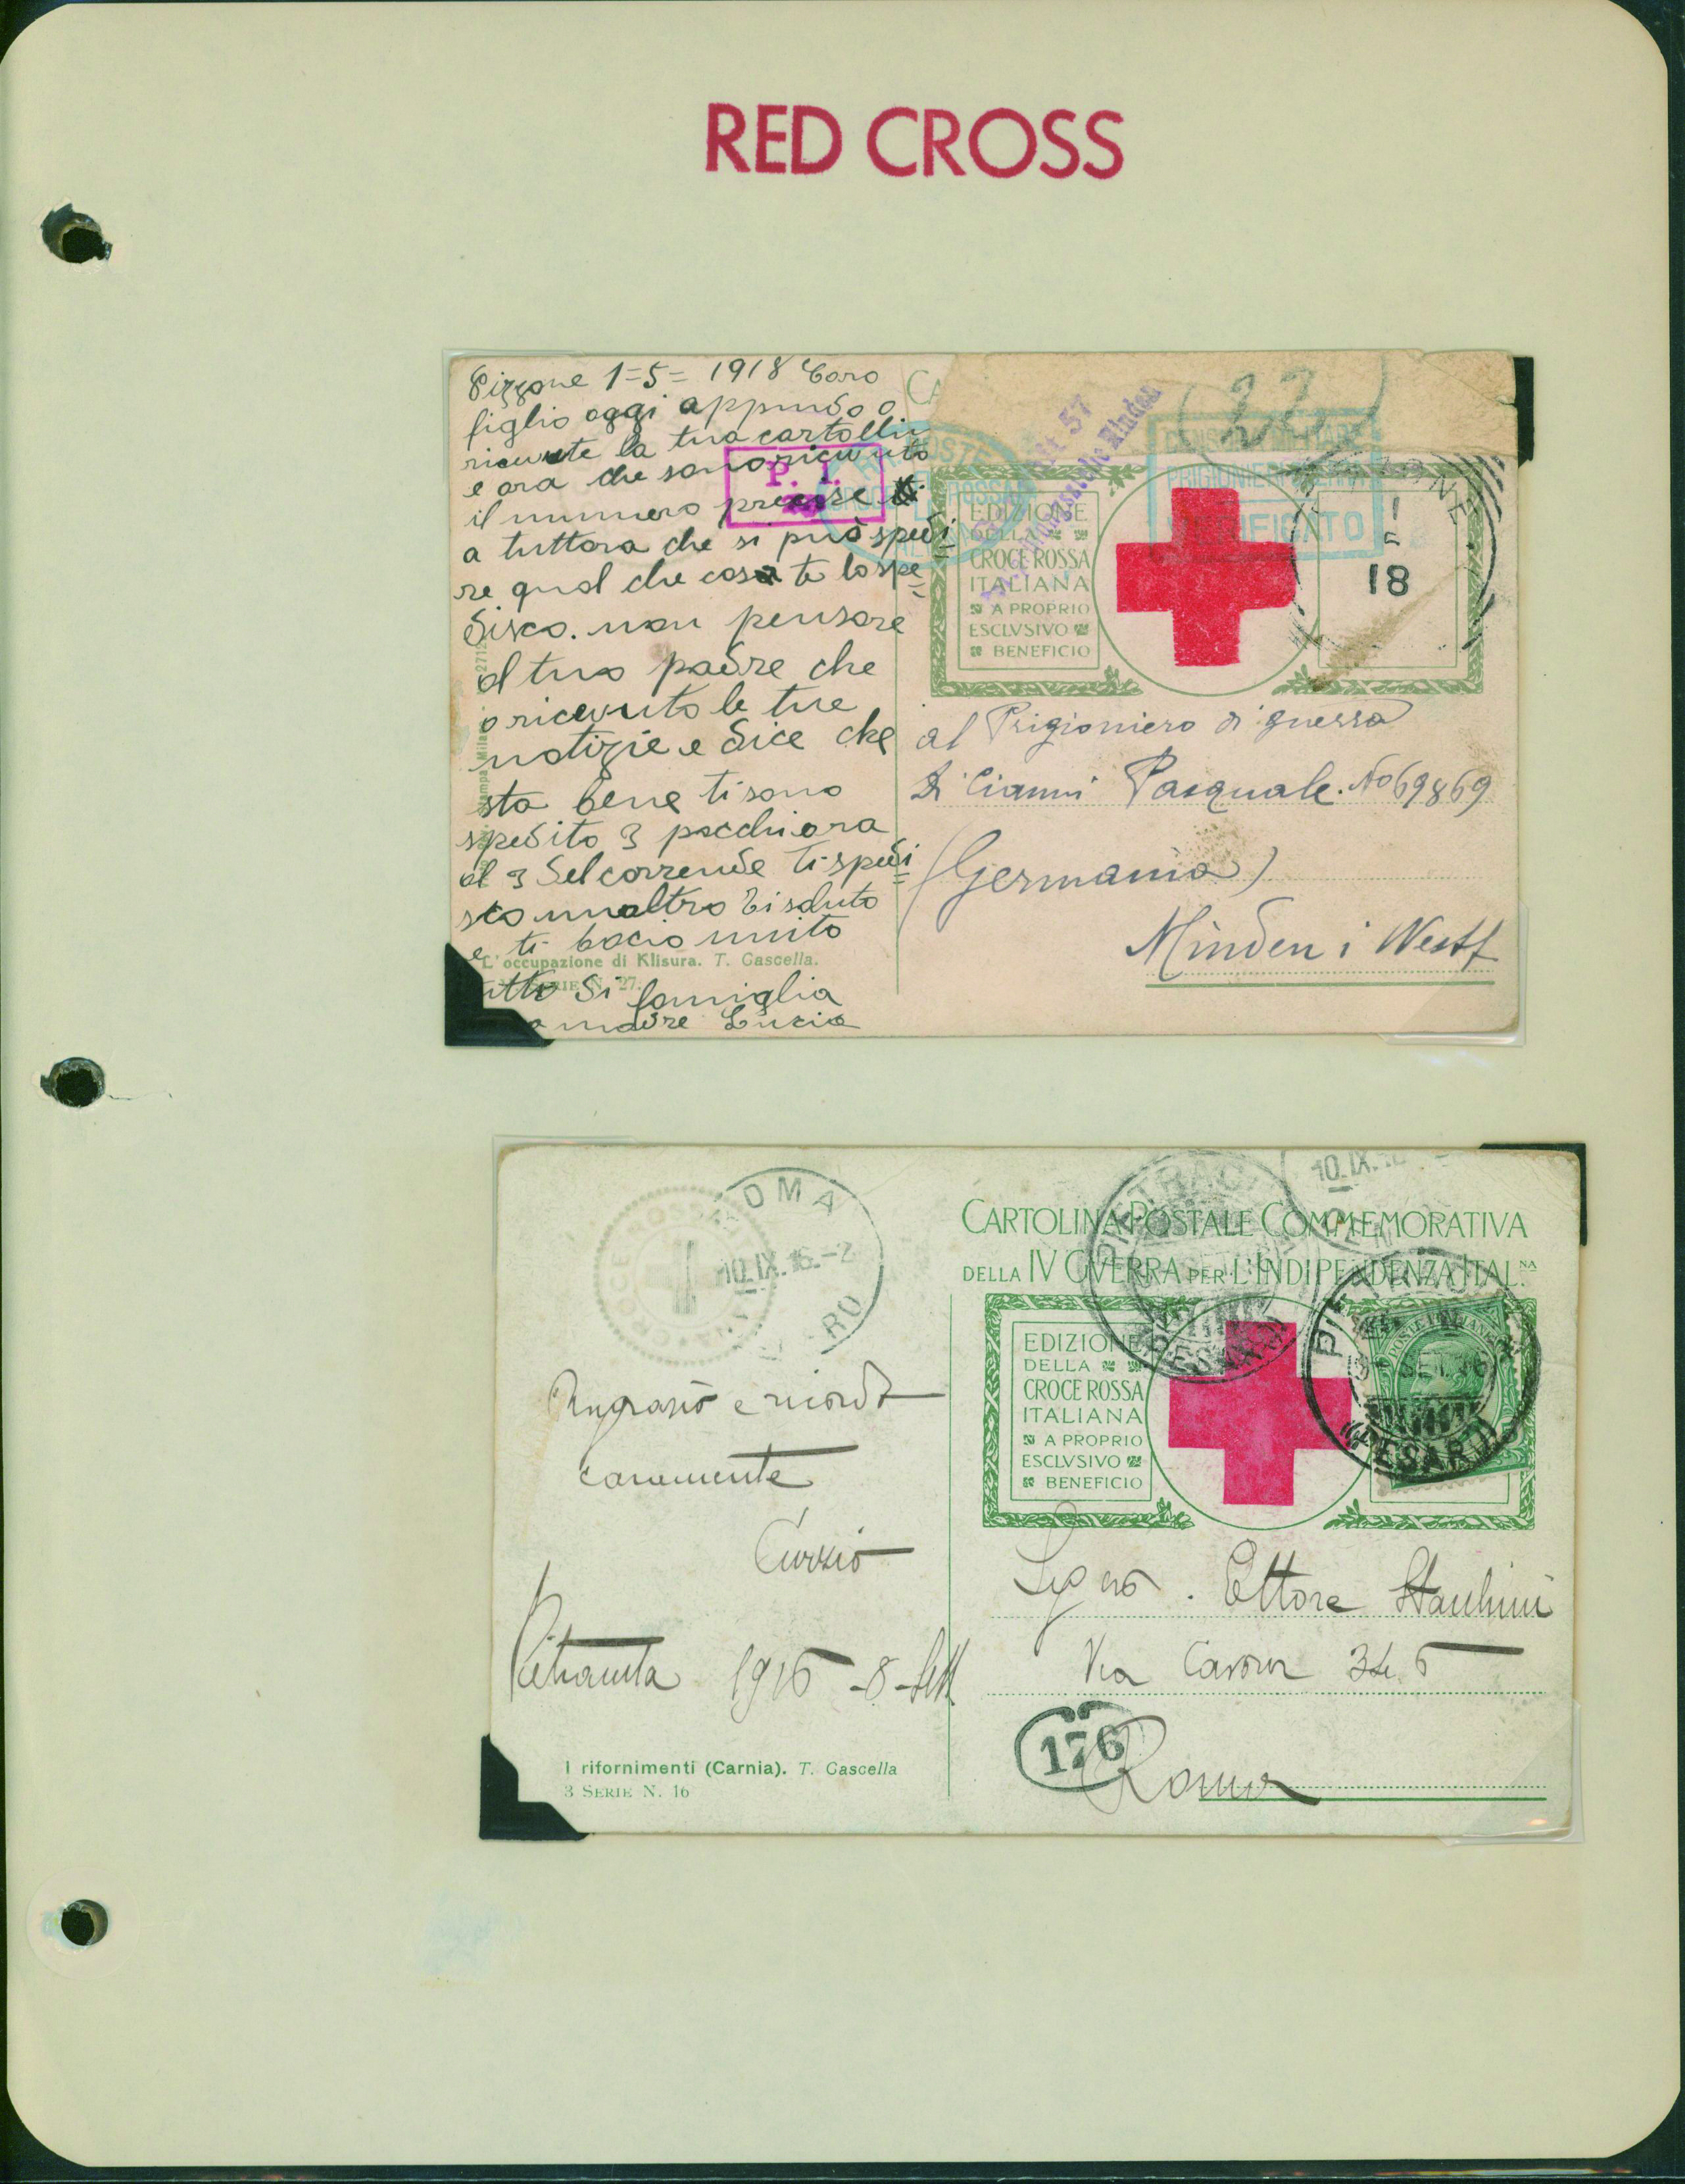 RED CROSS
Pizzone 1=5= 1918 Caro
figlio oggi appundo o
ricevute la tua cartollin
e ora che sono ricevuto
il numero precise
a tuttora che si può spedi=
re qual che cosa te lo spe=
disco. non pensare
al tuo padre che
o ricevuto le tue
notizie e dice che
sta bene ti sono
spedito 3 pacchi ora
al 3 del corrende ti spedi=
sco un altro ti saluto
e ti bacio unito
tutto di famiglia
madre Lucia
L'occupazione di Klisura. T. Cascella.
SERIE N. 27.
P. I.
CA
22
CENSURA MILITARE
PRIGIONIERI GUERRA
VERIFICATO
EDIZIONE
DELLA
CROCE ROSSA
ITALIANA
A PROPRIO
ESCLVSIVO
BENEFICIO
18
al Prigioniero di guerra
Di Cianni Pasquale. No 69869
(Germania)
Minden i Westf
CROCE ROSSA
ROMA
10.IX.16.-2
CARTOLINA POSTALE COMMEMORATIVA
DELLA IV GVERRA PER L'INDIPENDENZA ITAL.NA
EDIZIONE
DELLA
CROCE ROSSA
ITALIANA
A PROPRIO
ESCLVSIVO
BENEFICIO
POSTE ITALIANE
PESARO
Ringrazio e ricordo
caramente
Curzio
1916 - 8 - Sett
I rifornimenti (Carnia). T. Cascella
3 SERIE N. 16
Ettore
Via Cavour
176
Roma